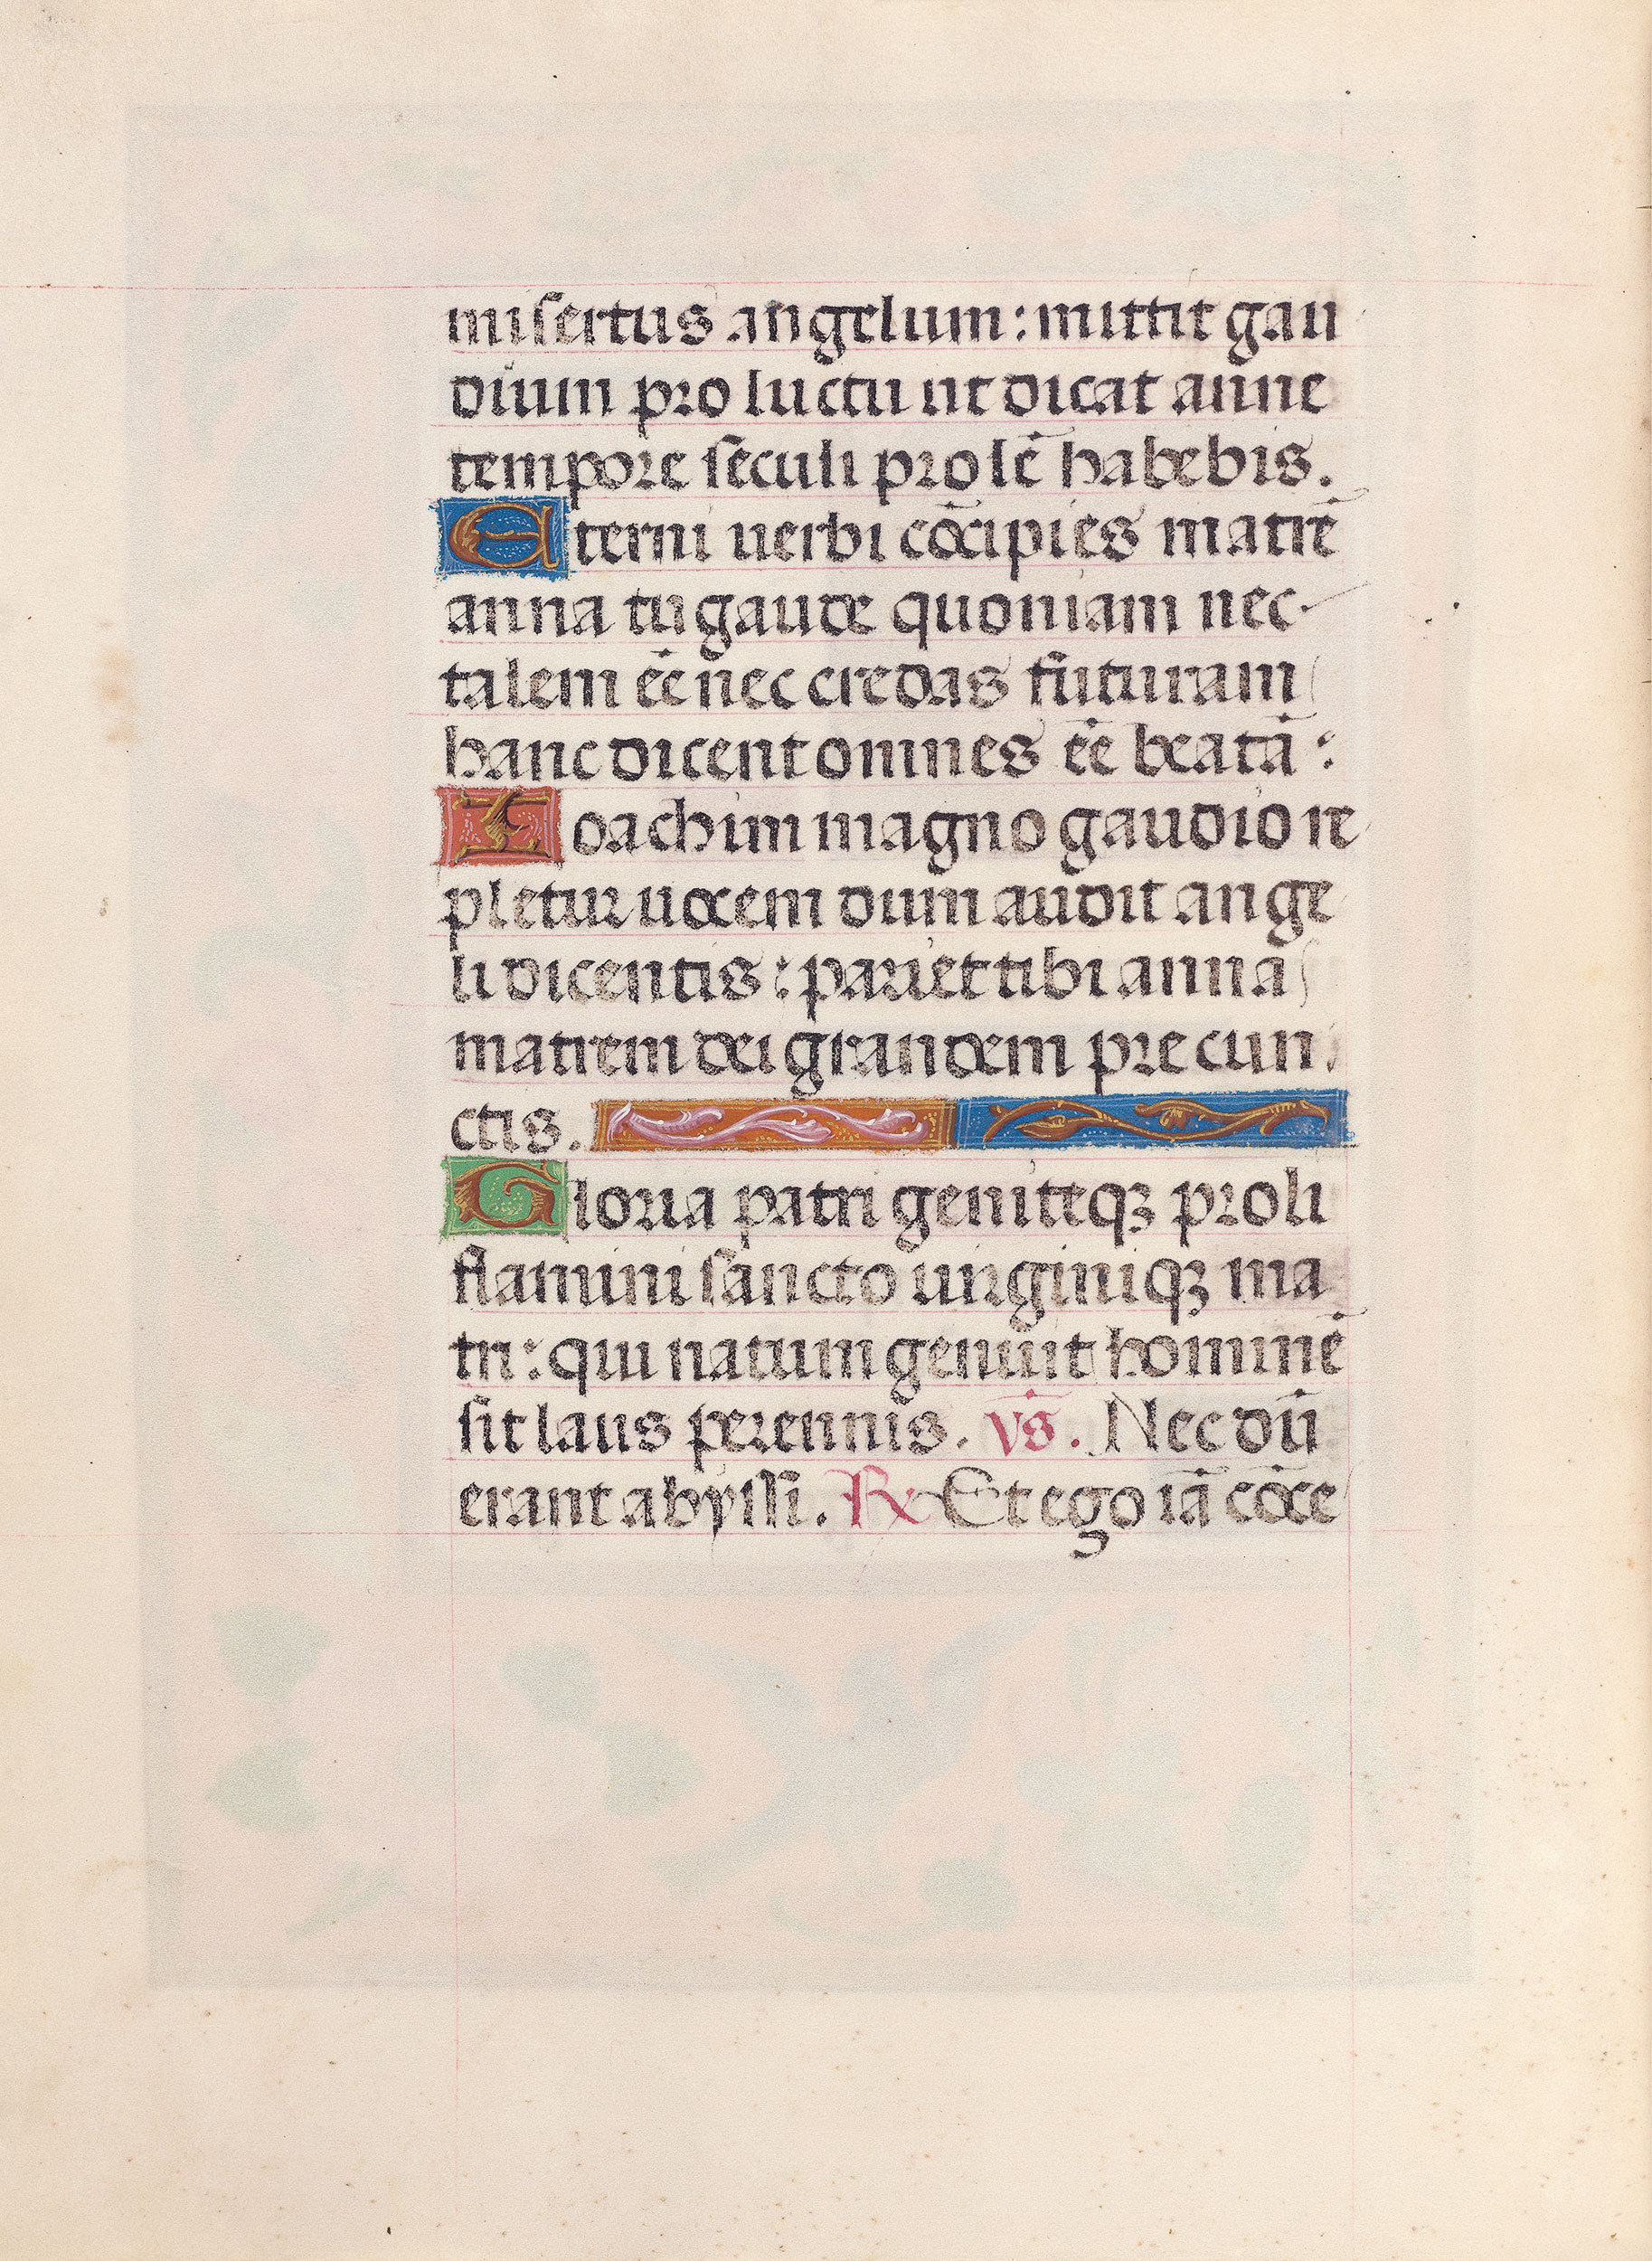 misertus angelum: mittit gau
dium pro luctu ut dicat anne
tempore seculi prolē habebis.
Eterni uerbi cōcipies matrē
anna tu gaude quoniam nec
talem ēē nec credas futuram
hanc dicent omnes ēē beatā:
Ioachim magno gaudio re
pletur uocem dum audit ange
li dicentis: pariet tibi anna
matrem dei grandem pre cun
ctis.
Gloria patri geniteqꝫ proli
flamini sancto uirginiqꝫ ma
tri: qui natum genuit hominē
sit laus perennis. vs̄. Nec dū
erant abyssi. ℟ Et ego iā cōce